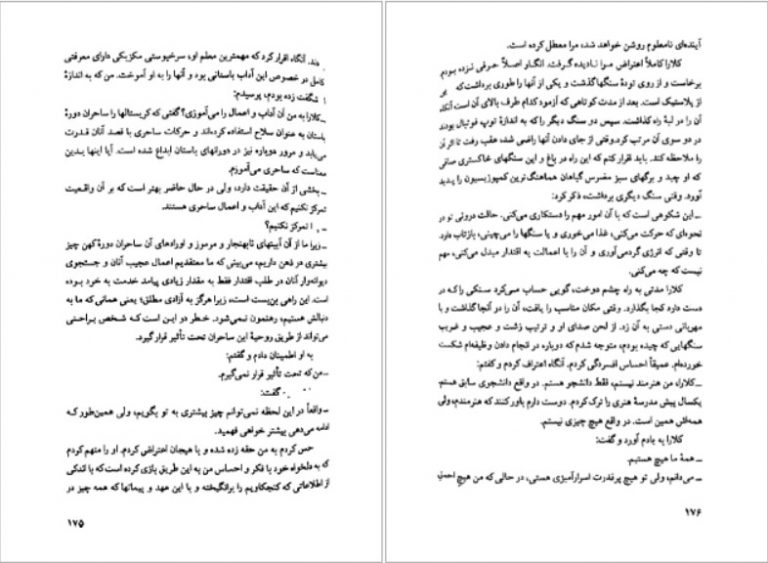 دند. آنگاه اقرار کرد که مهمترین معلم او، سرخپوستی مکزیکی دارای معرفتی
کامل در خصوص این آداب باستانی بود و آنها را به او آموخت. من که به اندازهٔ
شگفت زده بودم، پرسیدم:
ـ کلارا به من آن آداب و اعمال را می‌آموزی؟ گفتی که کریستالها را ساحران دورهٔ
باستان به عنوان سلاح استفاده کرده‌اند و حرکات ساحری با قصد آنان قدرت
می‌یابد و مرور دوباره نیز در دورانهای باستان ابداع شده است. آیا اینها بدین
معناست که ساحری می‌آموزم.
ـ بخشی از آن حقیقت دارد، ولی در حال حاضر بهتر است که بر آن واقعیت
تمرکز نکنیم که این آداب و اعمال ساحری هستند.
ـ ا تمرکز نکنیم؟
ـ زیرا ما از آن آیینهای نابهنجار و مرموز و اورادهای آن ساحران دورهٔ کهن چیز
بیشتری در ذهن داریم، می‌بینی که ما معتقدیم اعمال عجیب آنان و جستجوی
دیوانه‌وار آنان در طلب اقتدار فقط به مقدار زیادی پیامد خدمت به خرد بوده
است. این راهی بن‌بست است، زیرا هرگز به آزادی مطلق؛ یعنی همانی که ما به
دنبالش هستیم، رهنمون نمی‌شود. خطر در این است که شخص براحتی
می‌تواند از طریق روحیهٔ این ساحران تحت تأثیر قرار گیرد.
به او اطمینان دادم و گفتم:
ـ من که تحت تأثیر قرار نمی‌گیرم.
گفت:
ـ واقعاً در این لحظه نمی‌توانم چیز بیشتری به تو بگویم، ولی همین‌طور که
ادامه می‌دهی بیشتر خواهی فهمید.
حس کردم به من حقه زده شده و با هیجان اعتراض کردم. او را متهم کردم
که به دلخواه خود با فکر و احساس من به این طریق بازی کرده است که با اندکی
از اطلاعاتی که کنجکاویم را برانگیخته و با این عهد و پیمانها که همه چیز در
۱۷۵
آینده‌ای نامعلوم روشن خواهد شد، مرا معطل کرده است.
کلارا کاملاً اعتراض مرا نادیده گرفت. انگار اصلاً حرفی نزده بودم.
برخاست و از روی تودهٔ سنگها گذشت و یکی از آنها را طوری برداشت که
از پلاستیک است. بعد از مدت کوتاهی که آزمود کدام طرف بالای آن است آنگاه
آن را در لبهٔ راه گذاشت. سپس دو سنگ دیگر را که به اندازهٔ توپ فوتبال بودند
در دو سوی آن مرتب کرد. وقتی از جای دادن آنها راضی شد، عقب رفت تا اثر آن
را ملاحظه کند. باید اقرار کنم که این راه در باغ و این سنگهای خاکستری صافی
که او چید و برگهای سبز مضرس گیاهان هماهنگ‌ترین کمپوزیسیون را پدید
آورد. وقتی سنگ دیگری برداشت، ذکر کرد:
ـ این شکوهی است که با آن امور مهم را دستکاری می‌کنی. حالت درونی تو در
نحوه‌ای که حرکت می‌کنی، غذا می‌خوری و یا سنگها را می‌چینی، بازتاب دارد.
تا وقتی که انرژی گردمی‌آوری و آن را با اعمالت به اقتدار مبدل می‌کنی، مهم
نیست که چه می‌کنی.
کلارا مدتی به راه چشم دوخت، گویی حساب می‌کرد سنگی را که در
دست دارد کجا بگذارد. وقتی مکان مناسب را یافت، آن را در آنجا گذاشت و با
مهربانی دستی به آن زد. از لحن صدای او و ترتیب زشت و عجیب و غریب
سنگهایی که چیده بودم، متوجه شدم که دوباره در انجام دادن وظیفه‌ام شکست
خورده‌ام. عمیقاً احساس افسردگی کردم. آنگاه اعتراف کردم و گفتم:
ـ کلارا، من هنرمند نیستم، فقط دانشجو هستم. در واقع دانشجوی سابق هستم.
یکسال پیش مدرسهٔ هنری را ترک کردم. دوست دارم باور کنند که هنرمندم، ولی
همه‌اش همین است. در واقع هیچ چیزی نیستم.
کلارا به یادم آورد و گفت:
ـ همهٔ ما هیچ هستیم.
ـ می‌دانم، ولی تو هیچ پرقدرت اسرارآمیزی هستی، در حالی که من هیچ احمق
۱۷۶